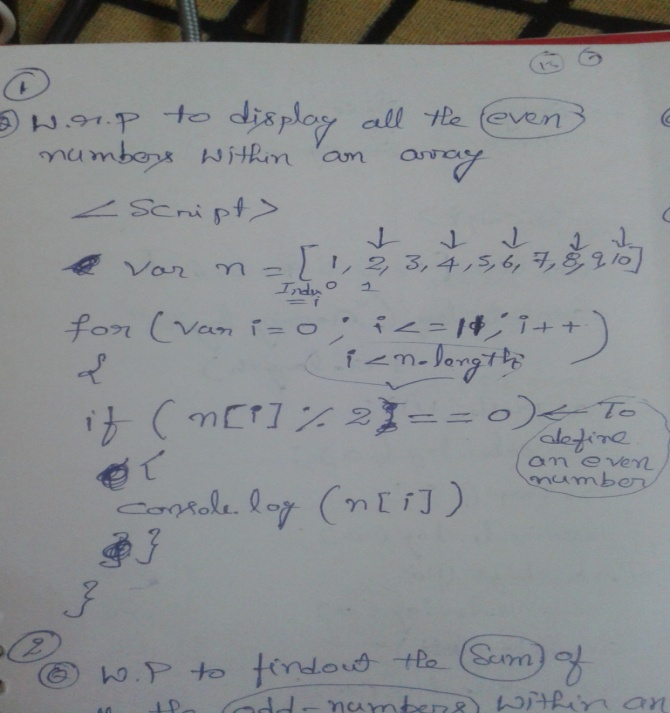 ①
W.n.p to display all the even
numbers within an array
<Script>
Var n = [ 1, 2, 3, 4, 5, 6, 7, 8, 9, 10]
Index 0 1
= i
for (Var i=0; i<=11; i++)
i<n.length;
{
if (n[i] % 2 == 0) ← To
define
an even
number
{
console.log (n[i])
}
}
②
W.P to findout the Sum of
the odd-numbers within an